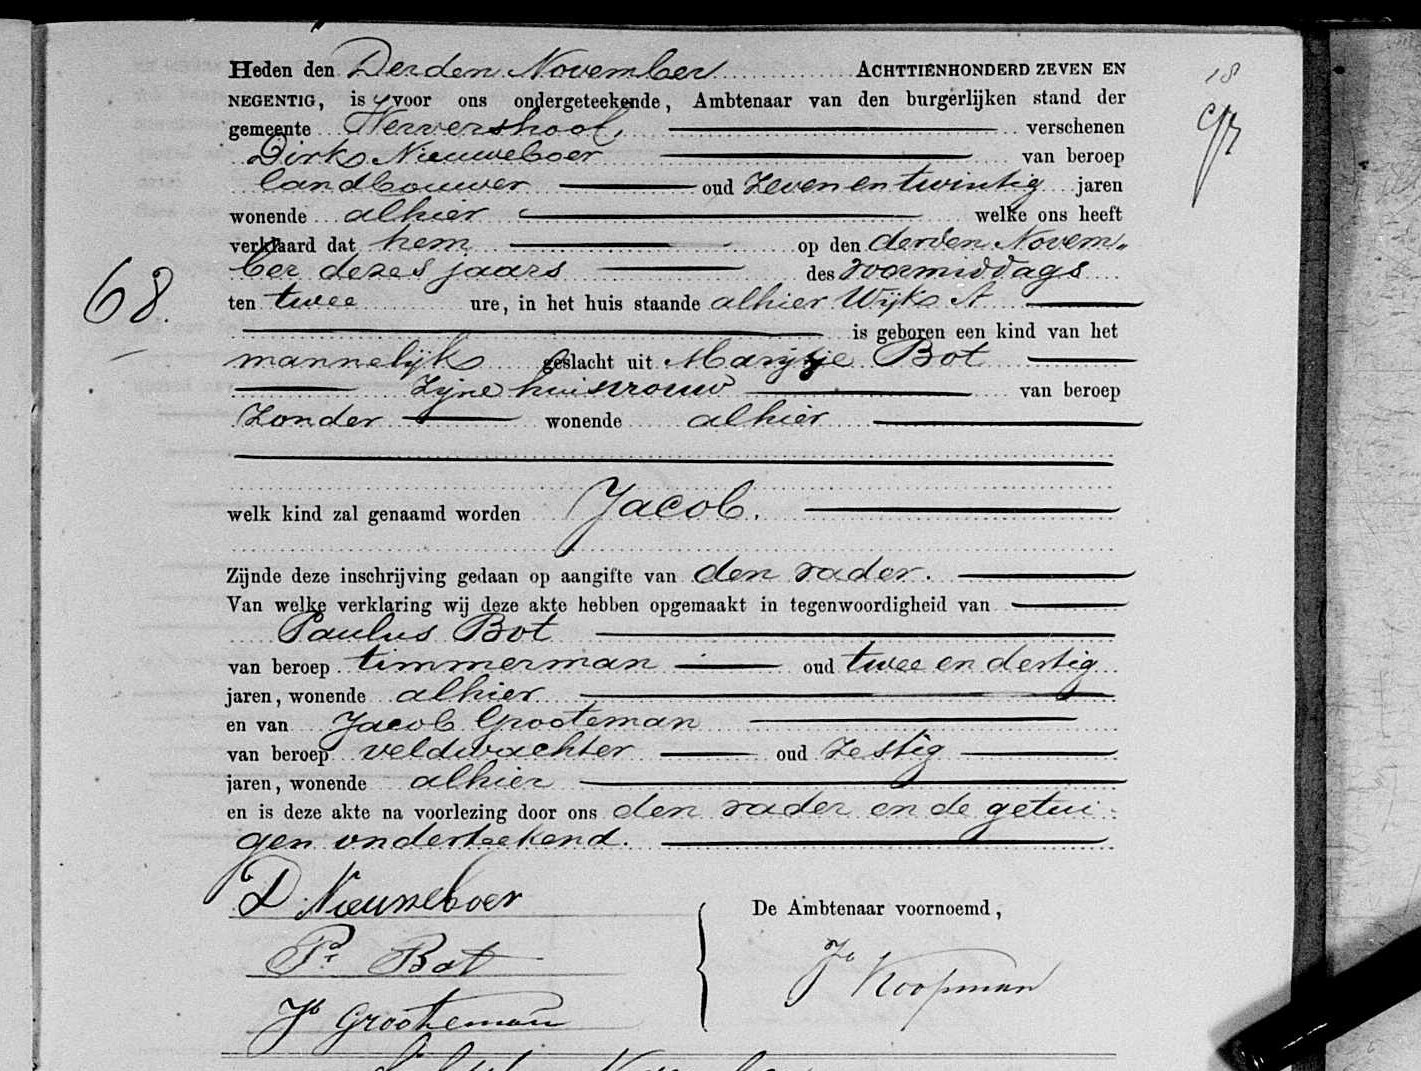 Heden den Derden November ACHTTIENHONDERD ZEVEN EN
NEGENTIG, is voor ons ondergeteekende, Ambtenaar van den burgerlijken stand der
gemeente Wervershoof, verschenen
Dirk Nieuweboer van beroep
landbouwer oud Zeven en twintig jaren
wonende alhier welke ons heeft
verklaard dat hem op den derden Novem-
ber dezes jaars des voormiddags
ten twee ure, in het huis staande alhier Wijk A
68. is geboren een kind van het
mannelijk geslacht uit Marijtje Bot
Zijne huisvrouw van beroep
Zonder wonende alhier
welk kind zal genaamd worden Jacob.
Zijnde deze inschrijving gedaan op aangifte van den vader.
Van welke verklaring wij deze akte hebben opgemaakt in tegenwoordigheid van
Paulus Bot
van beroep timmerman oud twee en dertig
jaren, wonende alhier
en van Jacob Grooteman
van beroep veldwachter oud Zestig
jaren, wonende alhier
en is deze akte na voorlezing door ons den vader en de getui-
gen onderteekend.
D Nieuweboer
De Ambtenaar voornoemd,
Pr Bot
Jb Grooteman
Koopman
18
97